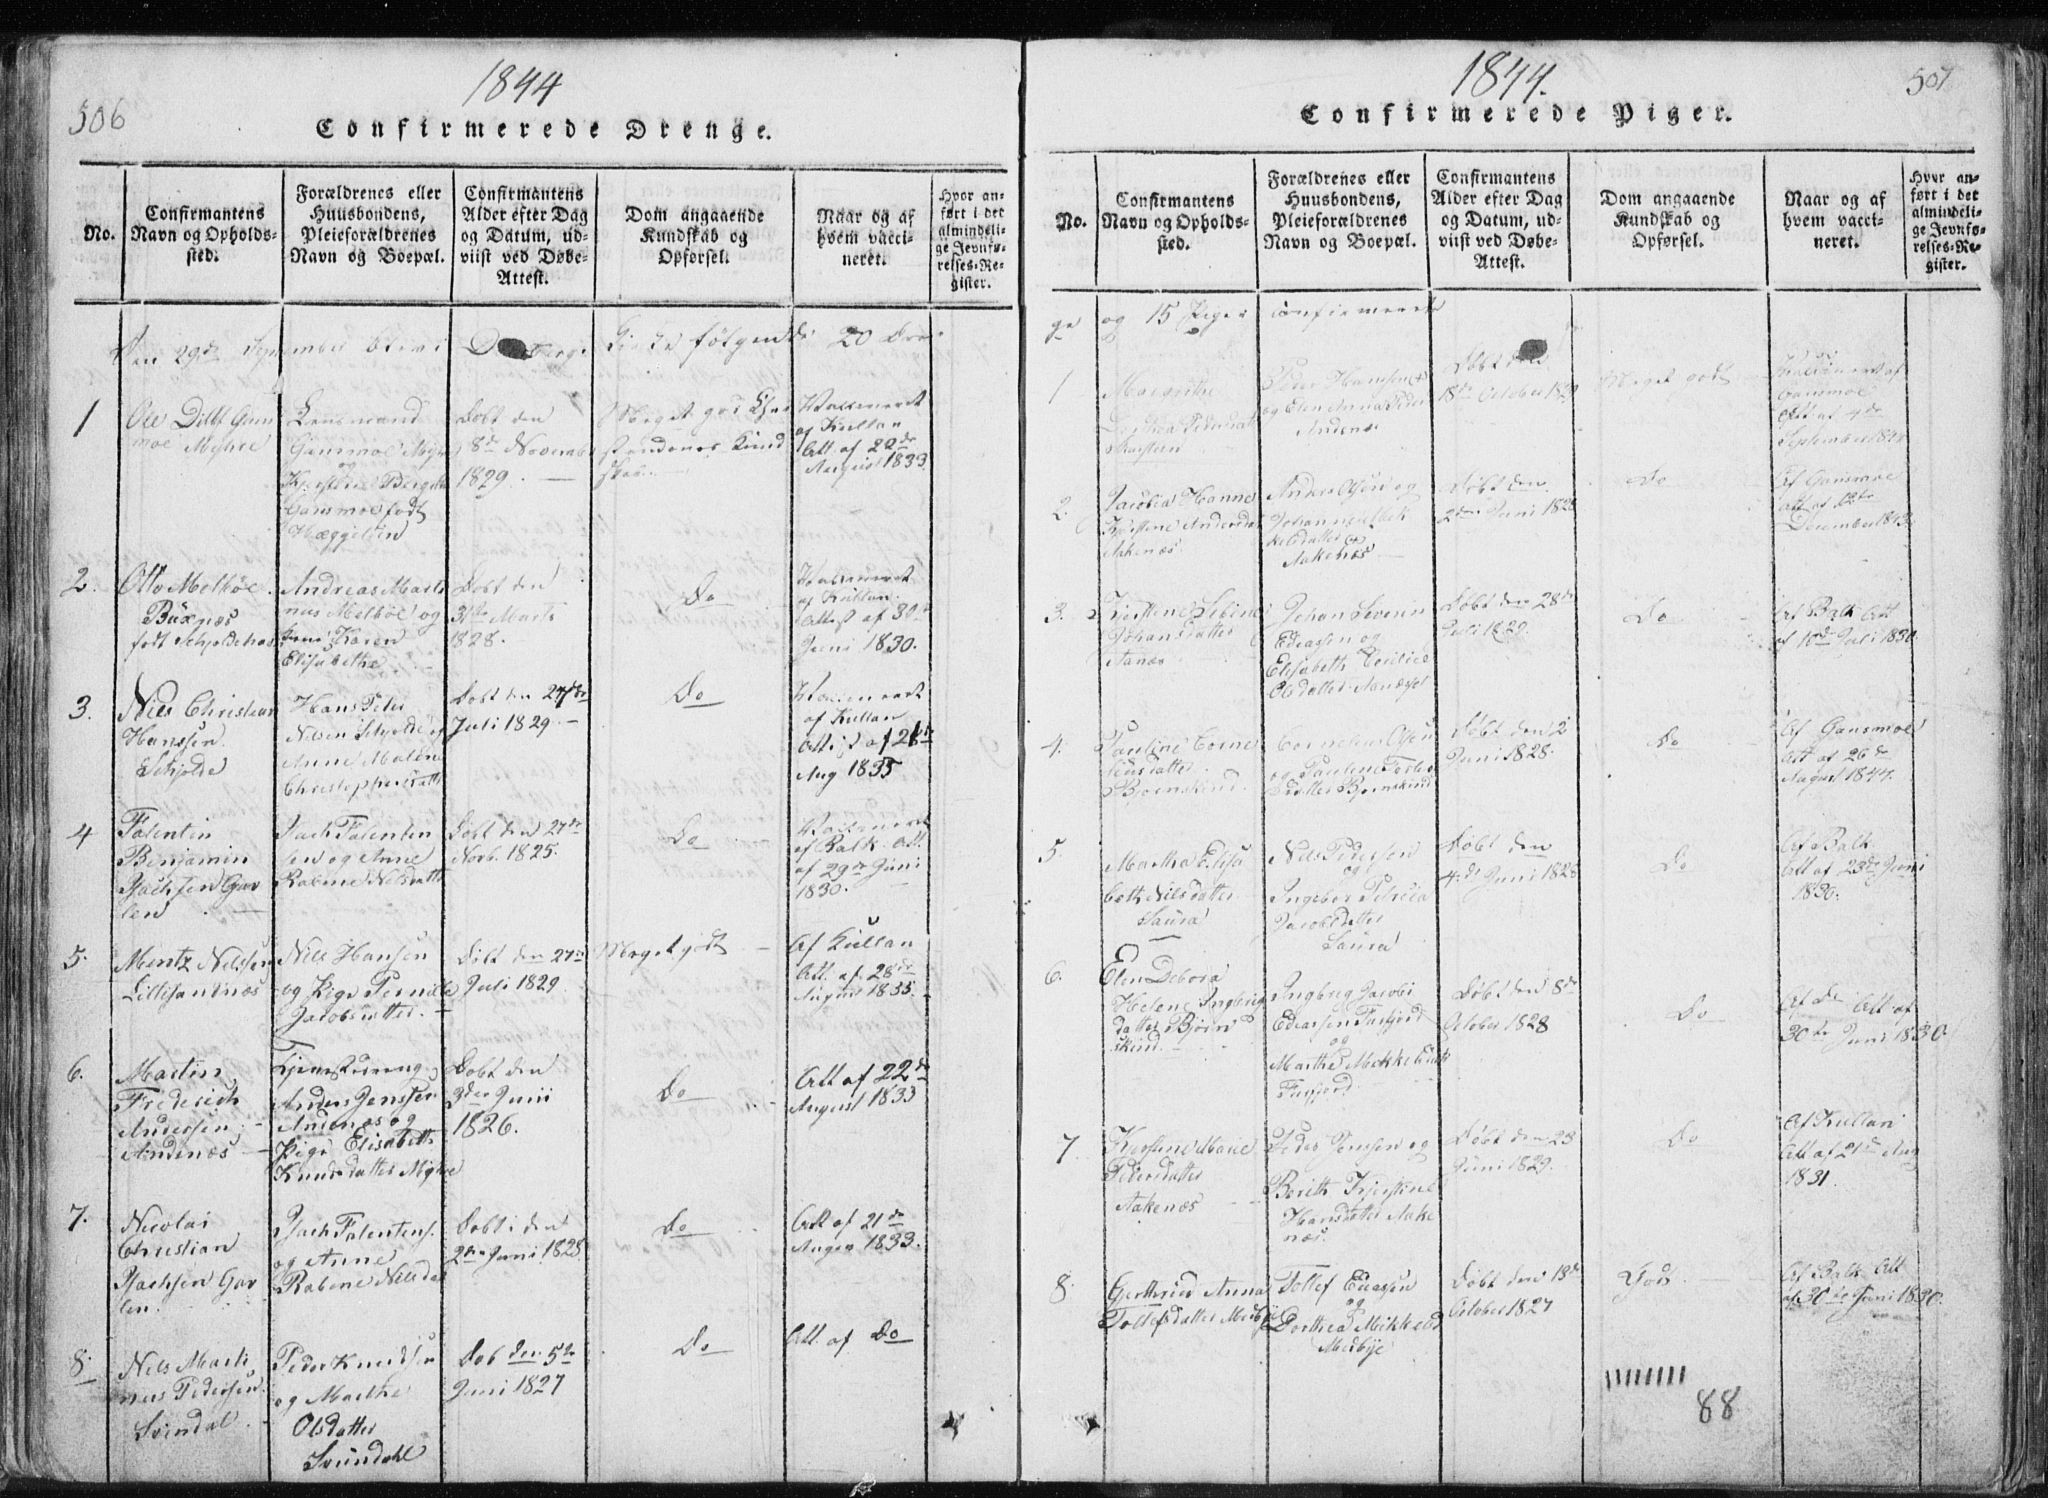 506
1844
Confirmerede Drenge.
No.
Confirmantens
Navn og Opholds-
sted.
Forældrenes eller
Huusbondens,
Pleieforældrenes
Navn og Boepæl.
Confirmantens
Alder efter Dag
og Datum, ud-
viist ved Døbe-
Attest.
Dom angaaende
Kundskab og
Opførsel.
Naar og af
hvem vacci-
neret.
Hvor an-
ført i det
almindeli-
ge Jevnfø-
relses-Re-
gister.
Den 29de September blev i Kirke følgende 20 Dren
1
Ole Ditlf Gans
moe Mejhre
Lensmand
Gansmoe
og
Gansmoe født
Hæggelsen
Døbt den
8de Novemb
1829.
Meget god Chri
stendoms Kund
skab.
Vaksineret
af Kullan
Att. af 22de
August 1833
2.
Otto Melbøe
Buxnæs
født Schjoldehas
Andreas Marti
nus Melbøe og
Karen
Elisabethe
Døbt den
31te Marts
1828.
Do
Vaksineret
af Kullan.
Attest af 30te
Juni 1830.
3.
Niels Christian
Hanssen
Schjolde
Hans Peter
Nilsen Schjolde og
Anne Malene
Christophersdatter
Døbt den 27de
Juli 1829
Do
Vaksineret
af Kullan
Attest af 28de
Aug 1835
4
Falentin
Benjamin
Isachsen Gav
len
Isach Falentin
sen og Anne
Rabene Nilsdatter
Døbt den 27de
Novb. 1825.
Do
Vaksineret
af Balk. Att.
af 29de Juni
1830.
5.
Mentz Nilssen
Lillisandnæs
Niels Hansen
og Pige Pernille
Jacobsdatter.
Døbt den 27de
Juli 1829
Meget godt
Af Kullan
Att. af 28de
August 1835.
6.
Martin
Frederich
Andersen
Andenæs
Tjenestedreng
Anders Jenssen
Andenæs og
Pige Elisabeth
Knudsdatter Myhre
Døbt den
3die Junii
1826.
Do
Att af 22de
August 1833
7.
Nicolai
Christian
Isachsen Gav
len.
Isach Falentens.
og Anne
Rabene Nilsdat
Døbt den
2den Juni 1828
Do
Att af 21de
August 1833.
8.
Nils Marti
nus Pedersen
Svendal
Peder Knudsen
og Marthe
Olsdatter
Svendahl
Døb den 5te
Juni 1827
Do
Att. af Do
507
1844.
Confirmerede Piger.
No.
Confirmantens
Navn og Opholds-
sted.
Forældrenes eller
Huusbondens,
Pleieforældrenes
Navn og Boepæl.
Confirmantens
Alder efter Dag
og Datum, ud-
viist ved Døbe-
Attest.
Dom angaaende
Kundskab og
Opførsel.
Naar og af
hvem vacci-
neret.
Hvor an-
ført i det
almindeli-
ge Jevnfø-
relses-Re-
gister.
ge og 15 Piger confirmerede
1
Margrethe
Dorthea Pedersdatter
Peder Hanssen
og Elen Anna Peders
Andenæs
Døbt den
18de October 1829
Meget godt
Vaksineret af
Gansmoe
Att af 4de
September 1844
2.
Jacobia Hanne
Kjerstene Andersdat
Aakenæs
Anders Olsen og
Johanne Mik
kelsdatter
Aakenæs
Døbt den
2den Juni 1828
Do
Af Gansmoe
att af 12te
December 1843
3.
Kjerstene Sebine
Johansdatter
Aanæs
Johan Severin
Edeassen og
Elisabeth Cecilie
Olsdatter Aanæsset
Døbt den 28de
Juli 1829.
Do
Af Balk Att
af 15de Juli 1830.
4.
Pauline Corne
liusdatter
Bjørnskind.
Cornelius Olsen
og Paulene Tosten
datter Bjørnskind
Døbt den 2
Juni 1828.
Do
Af Gansmoe
Att af 26de
August 1844.
5.
Martha Elisa
beth Nilsdatter
Saura
Nils Pedersen
og
Ingebor Petricia
Jacobsdatter
Saura
Døbt den
4de Juni 1828
Do
Af Balk
Att af 23de Juni
1830.
6.
Elen Debora
Helene Ingbrig
datter Bjørn
skind.
Ingbrig Jacobi
Edeassen Faxfjord
og
Marthe Mekkelsdat
Faxfjord
Døbt den 8de
October 1828
Do
Af Do Att af
30te Juni 1830.
7
Kjerstine Marie
Pedersdatter
Aakenæs
Peder Jenssen og
Berith Kjerstine
Hansdatter Aake
næs.
Døbt den 23
Juni 1829.
Do
Af Kullan
Att af 21de Aug
1831.
8.
Gjerthrud Anna
Tollefsdatter Medbye
Tollef Eliassen
og
Dorthea Mikkelsd
Medbye
Døbt den 13de
October 1827
Godt
Af Balk Att
af 30te Juni 1830.
88